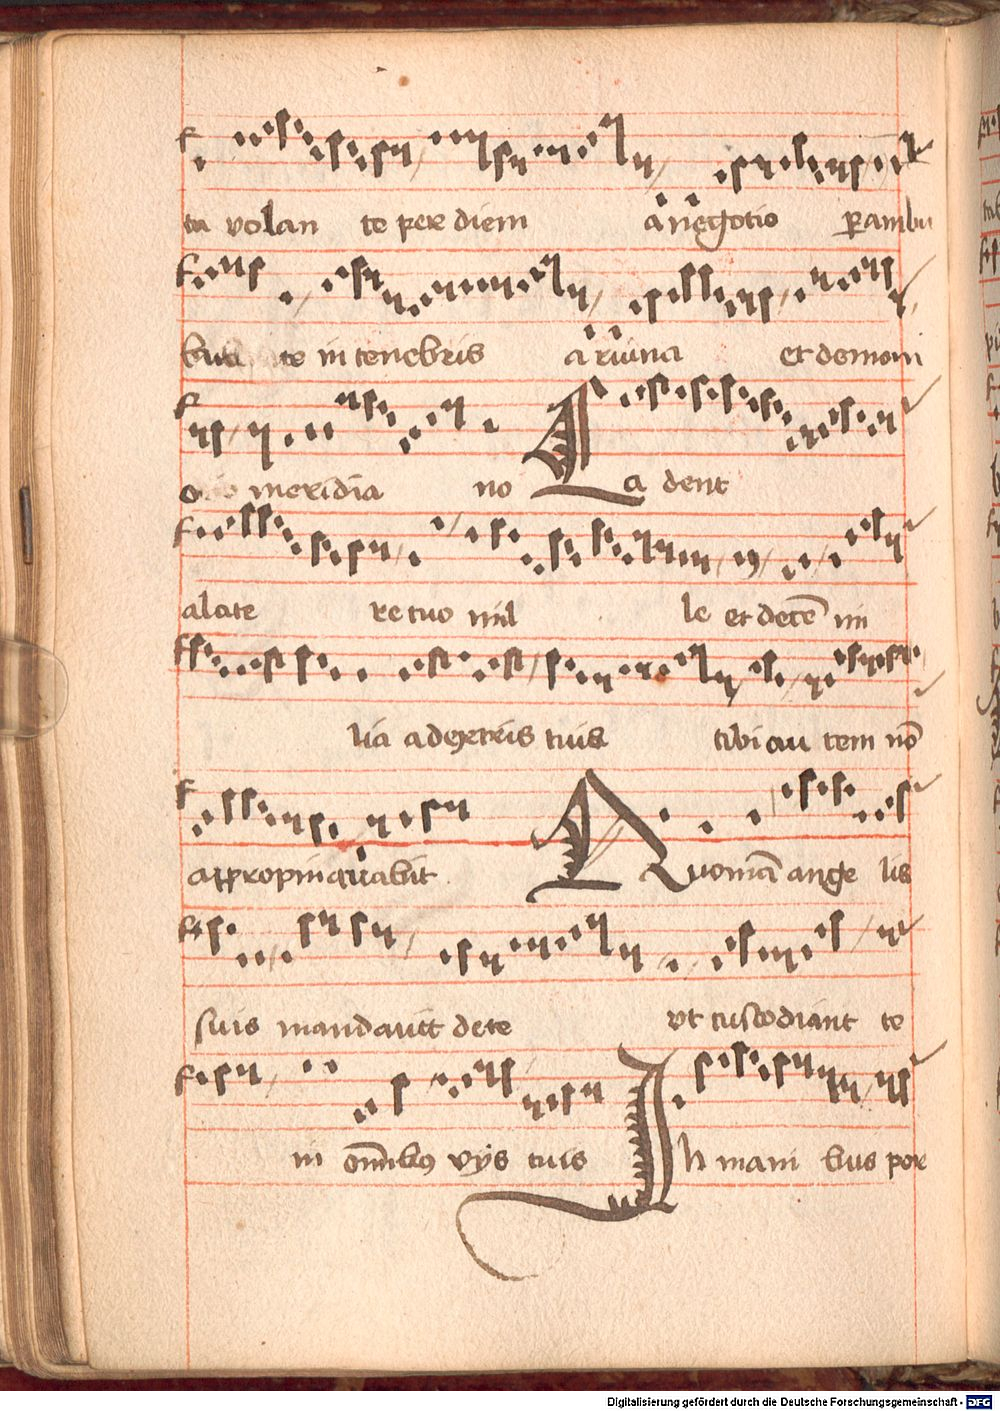 ta volan te per diem a negotio perambu
bula te in tenebris a ruina et demoni
o meridia no Ca dent
alate re tuo mil le et decē mi
lia adextris tuis tibi au tem nō
appropinquabit Quoniā ange lis
suis mandauit de te vt custodiant te
in om̄ibus vijs tuis In mani bus por
Digitalisierung gefördert durch die Deutsche Forschungsgemeinschaft - DFG